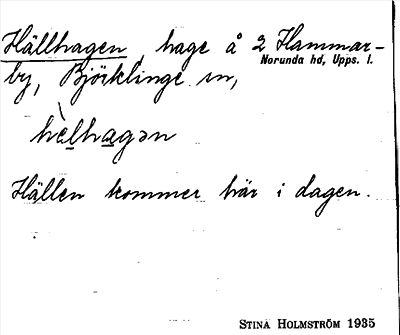 Hällhagen, hage å 2 Hammar-
Norunda hd, Upps. l.
by, Björklinge sn,
hèlhagən
Hällen kommer här i dagen.
STINA HOLMSTRÖM 1935